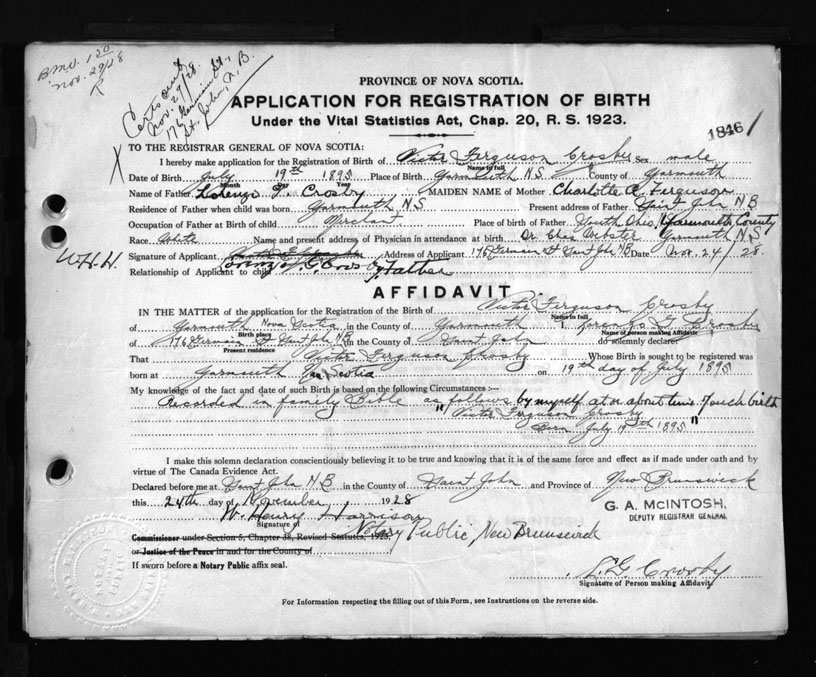 BMD. 120
Nov. 29/28
R
Certs out
Nov. 29/28.
176 Germain St.,
St. John, N.B.
PROVINCE OF NOVA SCOTIA.
APPLICATION FOR REGISTRATION OF BIRTH
Under the Vital Statistics Act, Chap. 20, R. S. 1923.
1846 1
X TO THE REGISTRAR GENERAL OF NOVA SCOTIA:
I hereby make application for the Registration of Birth of Victor Ferguson Crosby Sex male
Name in full
Date of Birth July 19th 1895 Place of Birth Yarmouth N.S. County of Yarmouth
Month Day Year
Name of Father Lorenzo G. Crosby MAIDEN NAME of Mother Charlotte A. Ferguson
Residence of Father when child was born Yarmouth N S Present address of Father Saint John N B
Occupation of Father at Birth of child Merchant Place of Birth of Father South Ohio, Yarmouth County
Race White Name and present address of Physician in attendance at birth Dr Chas Webster Yarmouth N.S.
W.H.H. Signature of Applicant Lorenzo G. Crosby Address of Applicant 176 Germain St Saint John NB Date Nov. 24/ 28
Relationship of Applicant to child Father
AFFIDAVIT
IN THE MATTER of the application for Registration of the Birth of Victor Ferguson Crosby
Name in full
of Yarmouth Nova Scotia in the County of Yarmouth I, Lorenzo G Crosby
Birth place Name of person making Affidavit
of 176 Germain St Saint John NB in the County of Saint John do solemnly declare
Present residence
That Victor Ferguson Crosby Whose Birth is sought to be registered was
born at Yarmouth N Scotia on 19th day of July 1895
My knowledge of the fact and date of such Birth is based on the following Circumstances :—
Recorded in family Bible as follows by myself at or about time of such birth
"Victor Ferguson Crosby
Born July 19th 1895"
I make this solemn declaration conscientiously believing it to be true and knowing that it is of the same force and effect as if made under oath and by
virtue of The Canada Evidence Act.
Declared before me at Saint John N B in the County of Saint John and Province of New Brunswick
this 24th day of November 1928
G. A. McINTOSH,
DEPUTY REGISTRAR GENERAL
W. Henry Harrison
Signature of
Notary Public, New Brunswick
Commissioner under Section 5, Chapter 38, Revised Statutes, 1923,
or Justice of the Peace in and for the County of
If sworn before a Notary Public affix seal.
L. G. Crosby
Signature of Person making Affidavit
For Information respecting the filling out of this Form, see Instructions on the reverse side.